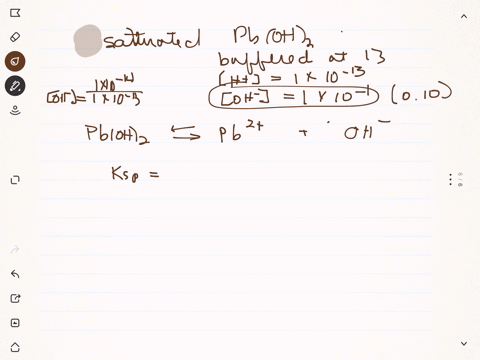 saturated Pb(OH)₂
buffered at 13
[H+] = 1 × 10⁻¹³
[OH⁻] = 1×10⁻¹⁴ / 1×10⁻¹³ [OH⁻] = 1 × 10⁻¹ (0.10)
Pb(OH)₂ ⇆ Pb²⁺ + OH⁻
Ksp =